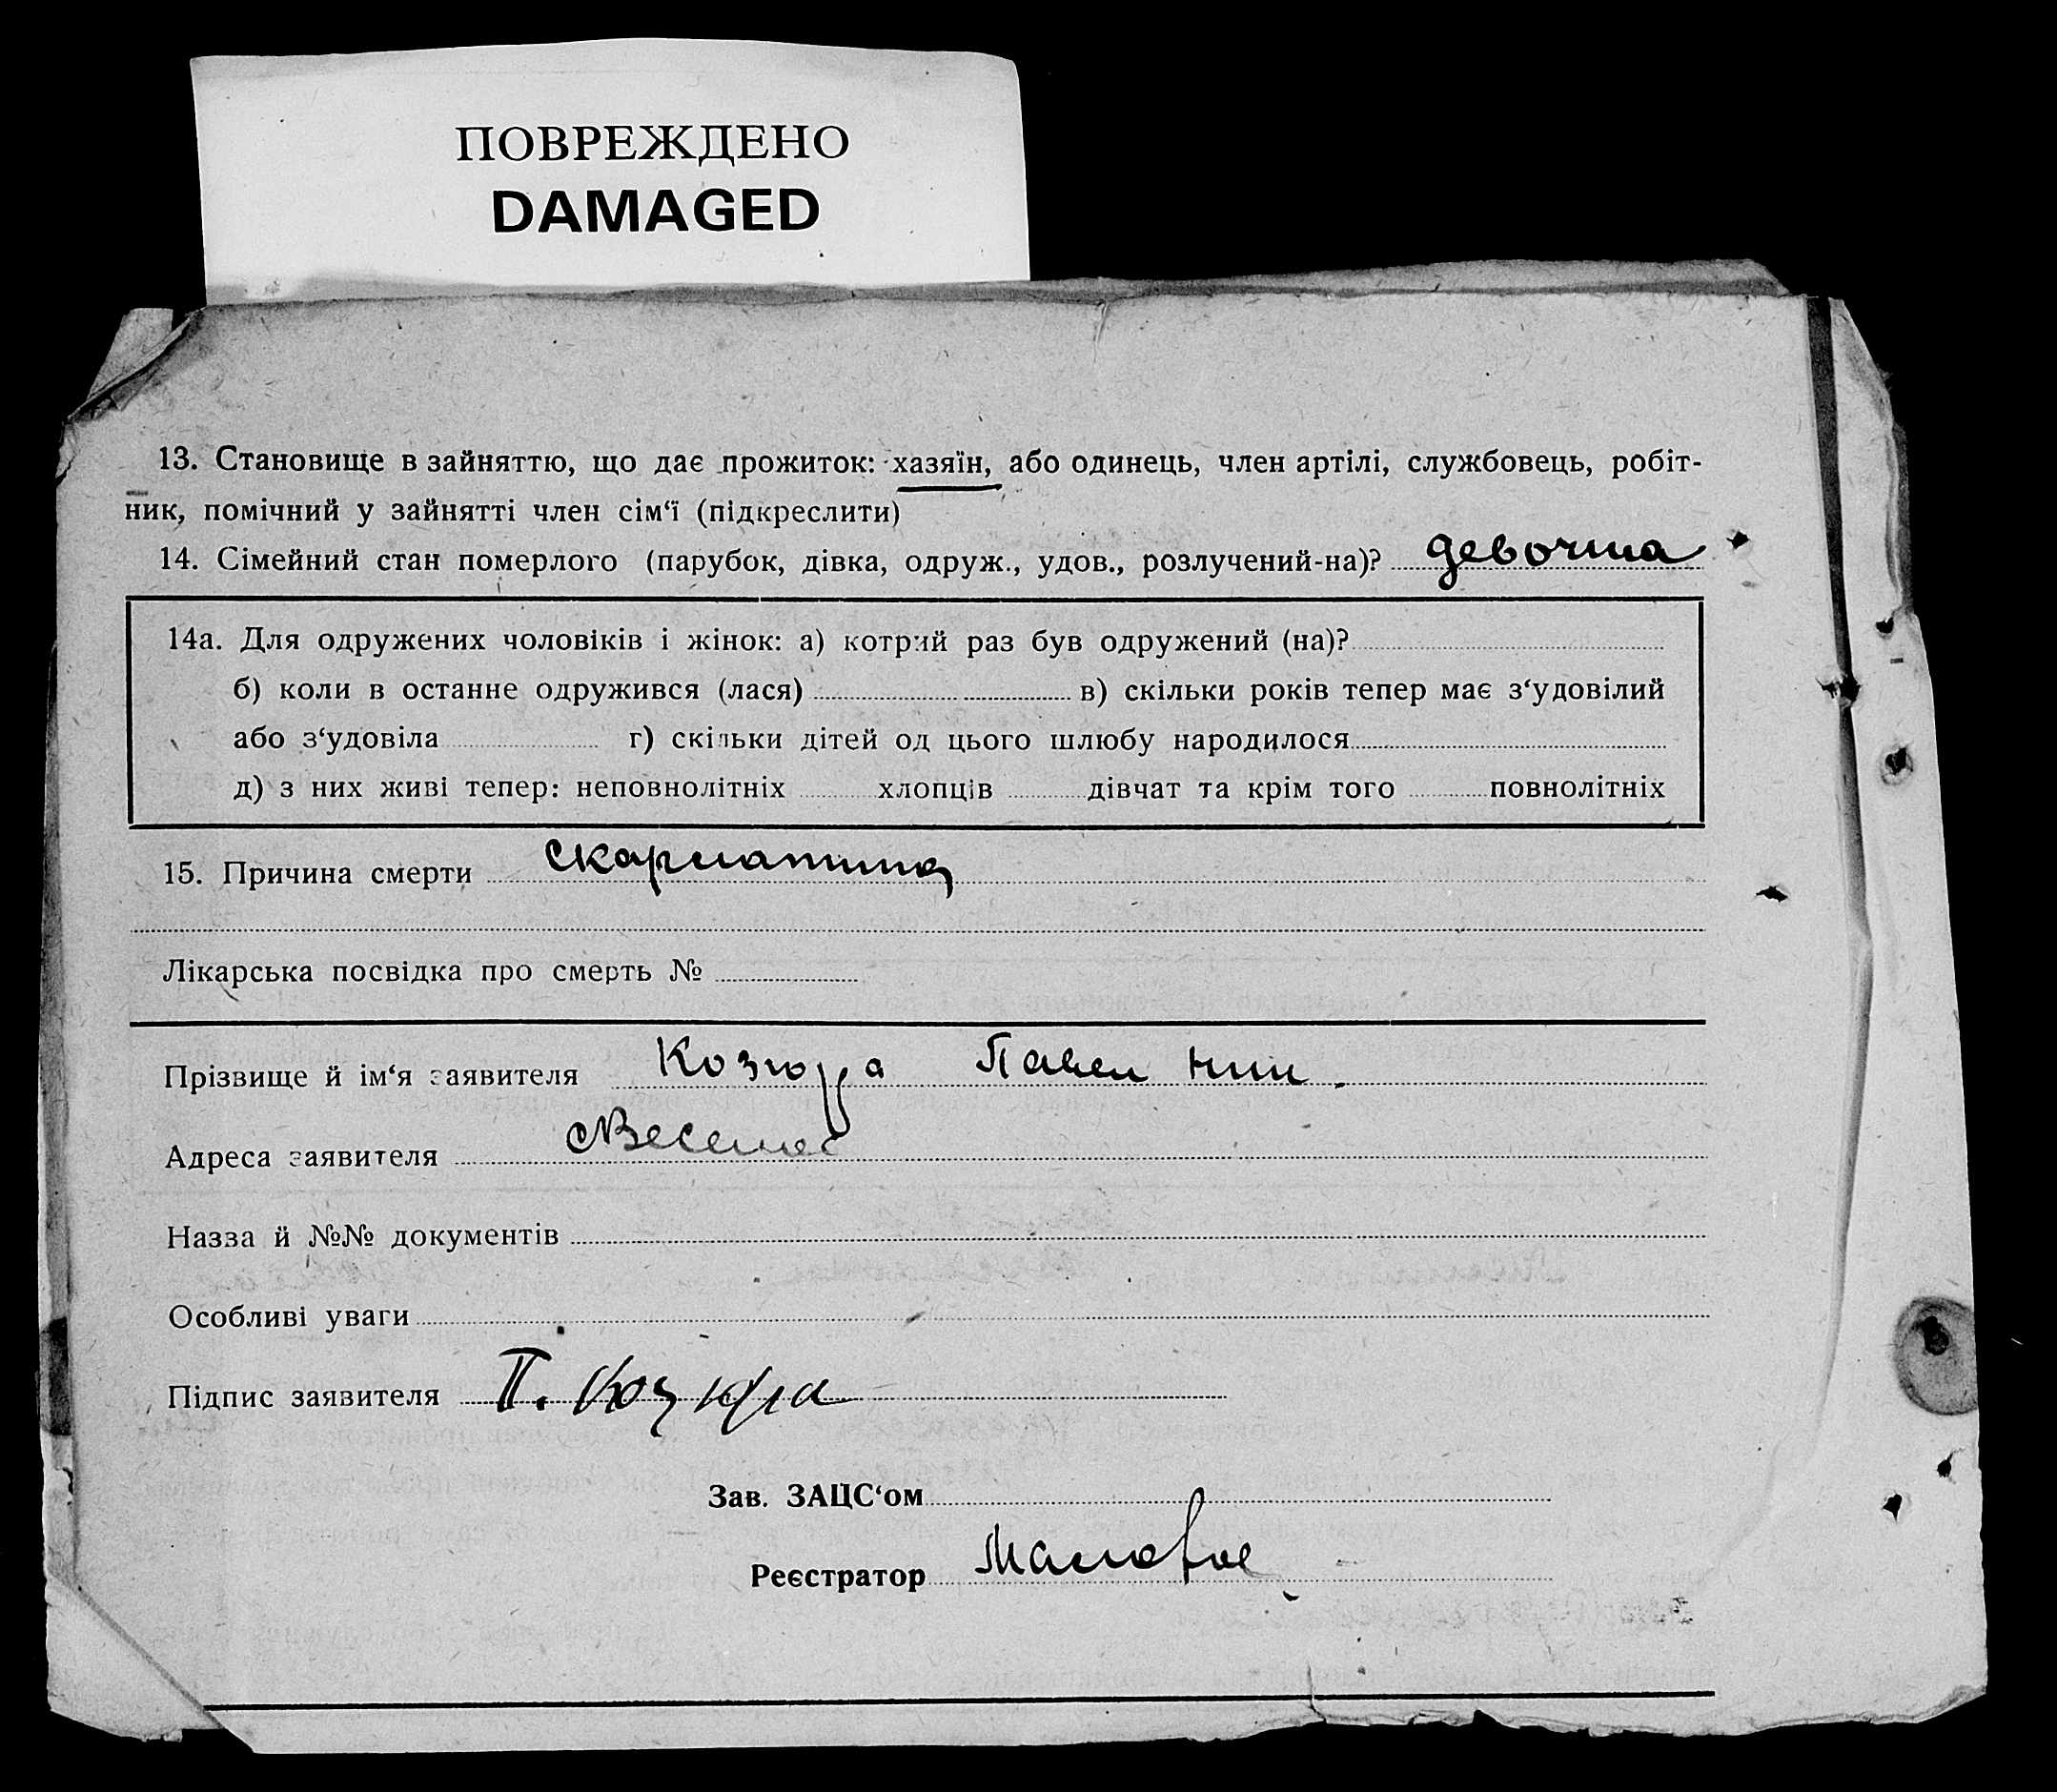 ПОВРЕЖДЕНО
DAMAGED
13. Становище в зайняттю, що дає прожиток: хазяїн, або одинець, член артілі, службовець, робіт-
ник, помічний у зайнятті член сім‘ї (підкреслити)
14. Сімейний стан померлого (парубок, дівка, одруж., удов., розлучений-на)? девочка
14а. Для одружених чоловіків і жінок: а) котрий раз був одружений (на)?
б) коли в останне одружився (лася) в) скільки років тепер має з‘удовілий
або з‘удовіла г) скільки дітей од цього шлюбу народилося
д) з них живі тепер: неповнолітніх хлопців дівчат та крім того повнолітніх
15. Причина смерти Скарлатина
Лікарська посвідка про смерть №
Прізвище й ім‘я заявителя Павел
Адреса заявителя
Назва й №№ документів
Особливі уваги
Підпис заявителя П.
Зав. ЗАЦС‘ом
Реєстратор